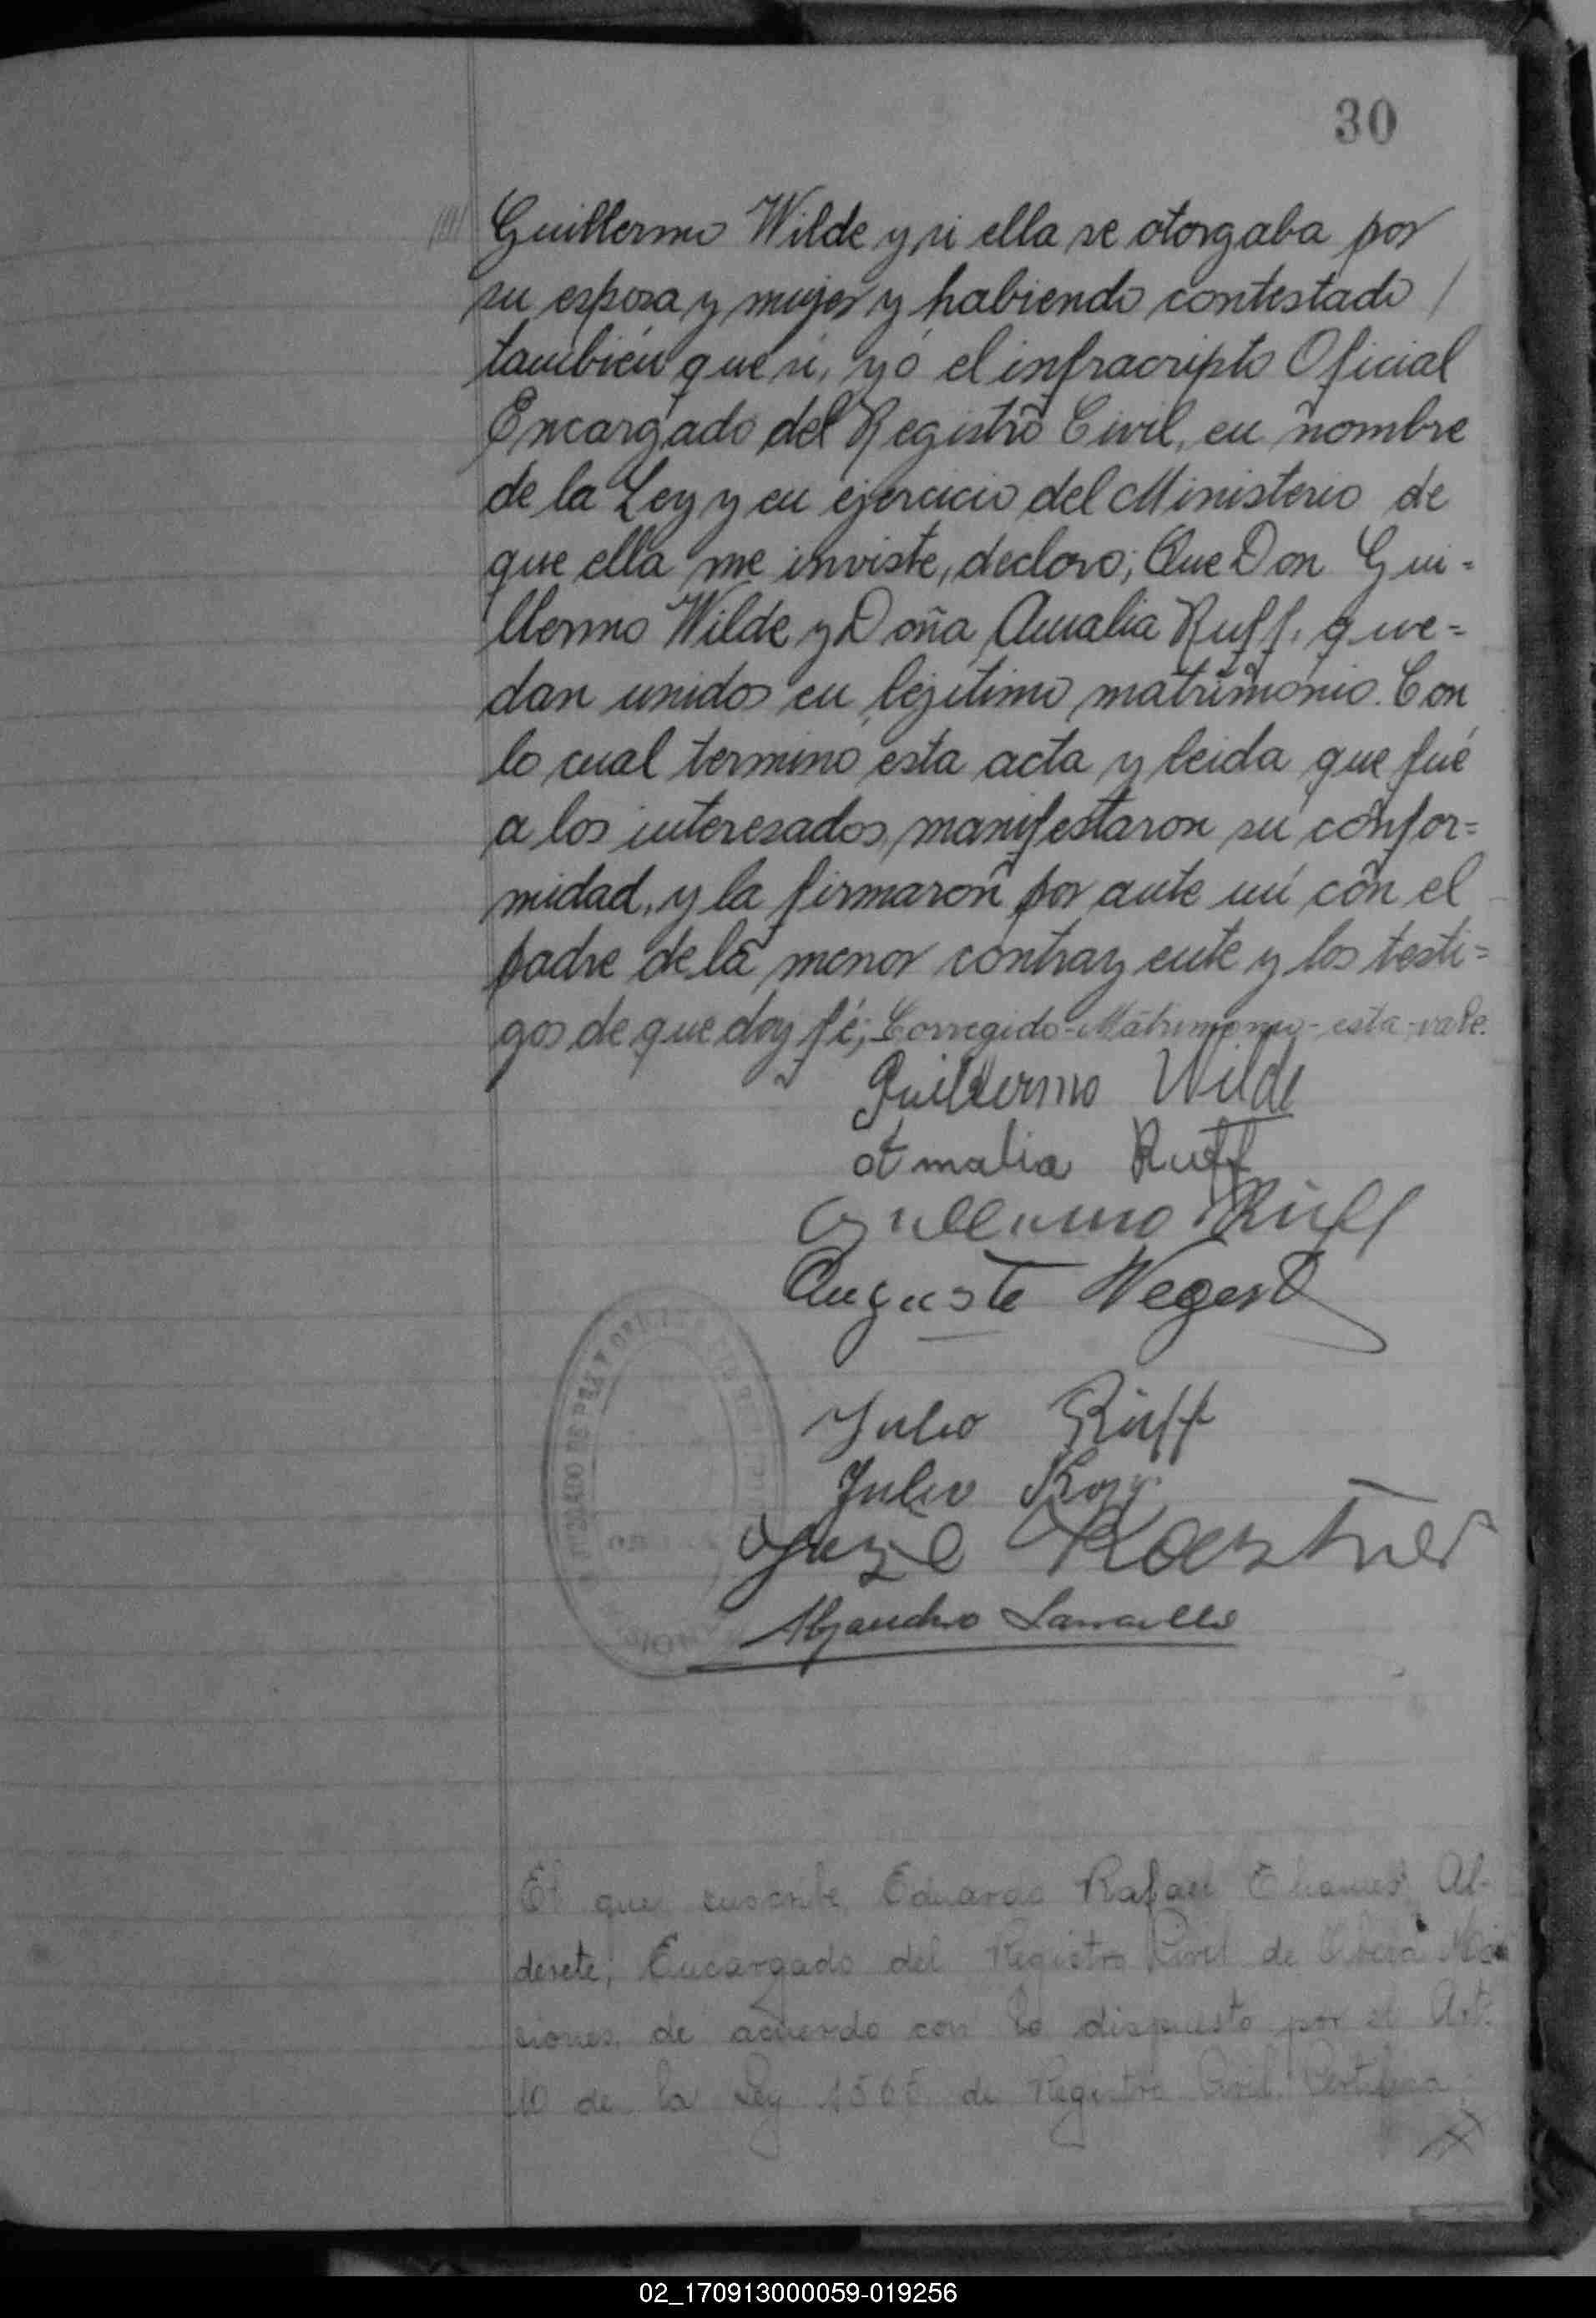 30
Guillermo Wilde y si ella se otorgaba por
su esposa y mujer y habiendo contestado /
también que si, yó el infracripto Oficial
Encargado del Registro Civil, en nombre
de la Ley y en ejercicio del Ministerio de
que ella me inviste, declaro; Que Don Gui=
llermo Wilde y Doña Amalia Ruff, que=
dan unidos en lejitimo matrimonio. Con
lo cual termino esta acta y leida que fué
a los interesados, manifestaron su confor=
midad, y la firmaron por ante mí con el
padre de la menor contrayente y los testi=
gos de que doy fé; Corregido-Matrimonio-esta-vale.
Guillermo Wilde
Amalia Ruff
Guillermo Ruff
Auguste Wegert
Julio Ruff
Julio
Kaestner
Alejandro
El que suscribe, Eduardo Rafael Al-
derete, Encargado del Registro Civil de Oberá Mi
siones, de acuerdo con lo dispuesto por el Art.
10 de la Ley 1565 de Registro Civil Certifica
02_170913000059-019256